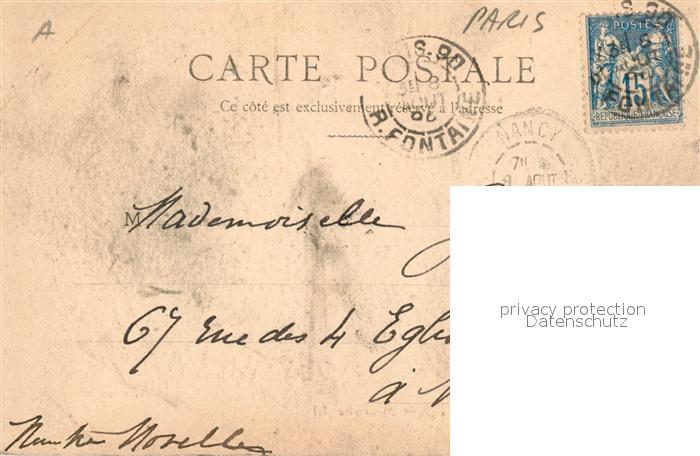 A
PARIS
POSTES
15
REPUBLIQUE FRANÇAISE
CARTE POSTALE
Ce côté est exclusivement réservé à l'adresse
R. FONTAINE
NANCY
AOUT
M
Mademoiselle
67 rue des 4 Egli
à
Moselle
privacy protection
Datenschutz